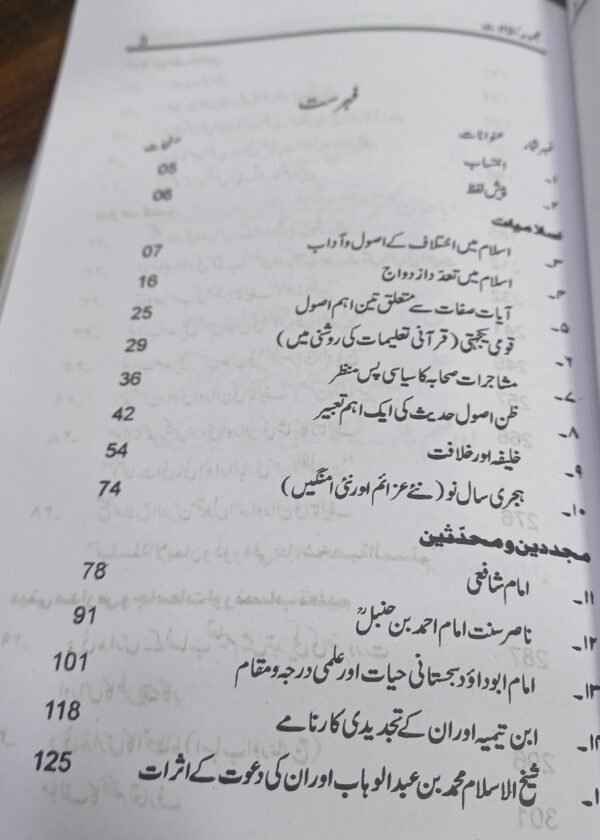 مجموعہ مقالات 3
فہرست
نمبر شمار عنوانات صفحات
۱۔ انتساب 05
۲۔ پیش لفظ 06
اسلامیات
۳۔ اسلام میں اختلاف کے اصول و آداب 07
۴۔ اسلام میں تعدّد ازدواج 16
۵۔ آیات صفات سے متعلق تین اہم اصول 25
۶۔ قومی یکجہتی (قرآنی تعلیمات کی روشنی میں) 29
۷۔ مشاجرات صحابہ کا سیاسی پس منظر 36
۸۔ ظن اصول حدیث کی ایک اہم تعبیر 42
۹۔ خلیفہ اور خلافت 54
۱۰۔ ہجری سال نو (نئے عزائم اور نئی امنگیں) 74
مجددین و محدّثین
۱۱۔ امام شافعی 78
۱۲۔ ناصر سنت امام احمد بن حنبلؒ 91
۱۳۔ امام ابوداؤد سجستانی حیات اور علمی درجہ و مقام 101
۱۴۔ ابن تیمیہ اور ان کے تجدیدی کارنامے 118
شیخ الاسلام محمد بن عبدالوہاب اور ان کی دعوت کے اثرات 125